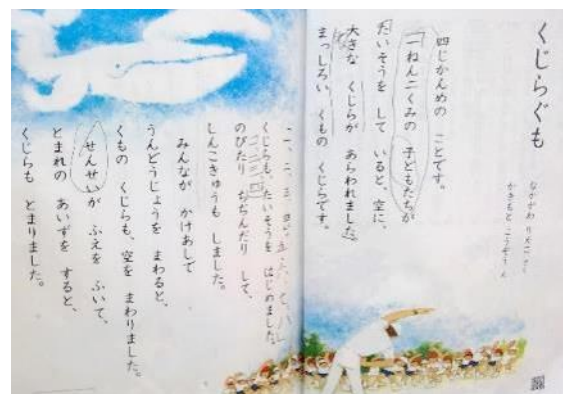 くじらぐも
なかがわ りえこ さく
かきもと こうぞう え
四じかんめの ことです。
一ねん二くみの 子どもたちが
たいそうを して いると、空に、
大きな くじらが あらわれました。
まっしろい くもの くじらです。
「一、二、三、四。」
くじらも、たいそうを はじめました。
のびたり ちぢんだり して、
しんこきゅうも しました。
みんなが かけあしで
うんどうじょうを まわると、
くもの くじらも、空を まわりました。
せんせいが ふえを ふいて、
とまれの あいずを すると、
くじらも とまりました。